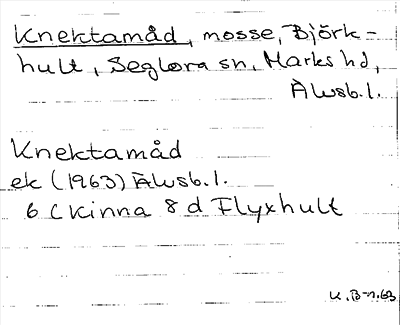 Knektamåd, mosse, Björk-
hult, Seglora sn, Marks hd,
Älvsb. l.
Knektamåd
ek (1963) Älvsb. l.
6 C Kinna 8 d Flyxhult
K. B-n. 63